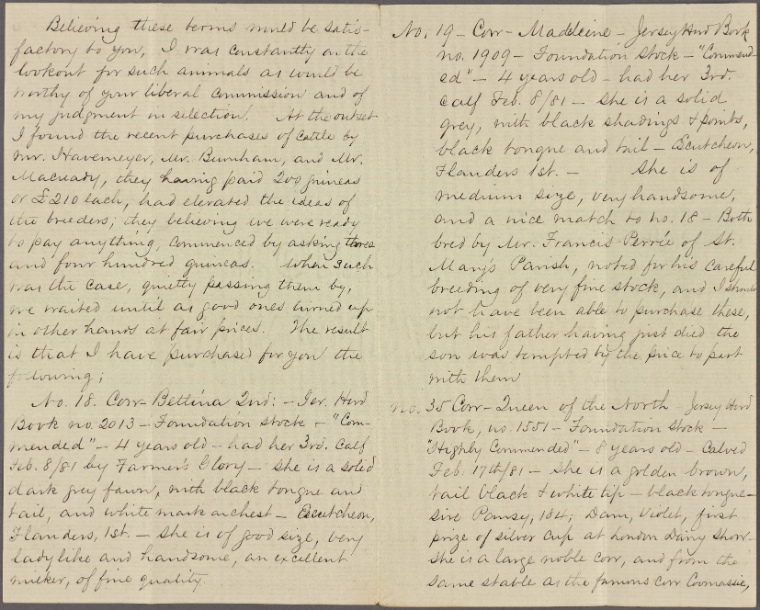 Believing these terms would be satis-
factory to you, I was constantly on the
lookout for such animals as would be
worthy of your liberal commission and of
my judgment in selection. At the outset
I found the recent purchases of Cattle by
Mr. Havemeyer, Mr. Burnham, and Mr.
Macready, they having paid 200 guineas
or £210 each, had elevated the ideas of
the breeders; they believing we were ready
to pay anything, commenced by asking three
and four hundred guineas. When such
was the case, quietly passing them by,
we waited until as good ones turned up
in other hands at fair prices. The result
is that I have purchased for you the
following;
No. 18. Cow - Bettina 2nd: - Jer. Herd
Book no. 2013 - Foundation stock - "Com-
mended" - 4 years old - had her 3rd. Calf
Feb. 8/81 by Farmer's Glory - She is a solid
dark grey fawn, with black tongue and
tail, and white mark on chest - Escutcheon,
Flanders, 1st. - She is of good size, very
ladylike and handsome, an excellent
milker, of fine quality.
No. 19 - Cow - Madeleine - Jersey Herd Book
no. 1909 - Foundation Stock - "Commend-
ed" - 4 years old - had her 3rd.
Calf Feb. 8/81 - She is a solid
grey, with black shadings & points,
black tongue and tail - Escutcheon,
Flanders 1st. - She is of
medium size, very handsome,
and a nice match to no. 18 - Both
bred by Mr. Francis Perrée of St.
Mary's Parish, noted for his careful
breeding of very fine stock, and I should
not have been able to purchase these,
but his father having just died the
son was tempted by the price to part
with them
No. 35 Cow - Queen of the North - Jersey Herd
Book, no. 1551 - Foundation Stock -
"Highly Commended" - 8 years old - Calved
Feb. 17th/81 - She is a golden brown,
tail black & white tip - black tongue -
Sire Pansy, 184; Dam, Violet, first
prize of silver cup at London Dairy Show.
She is a large noble cow, and from the
same stable as the famous cow Coomassie,